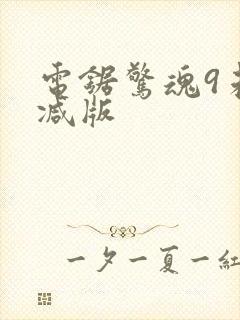 電鋸驚魂9未
减版
一夕一夏一紅